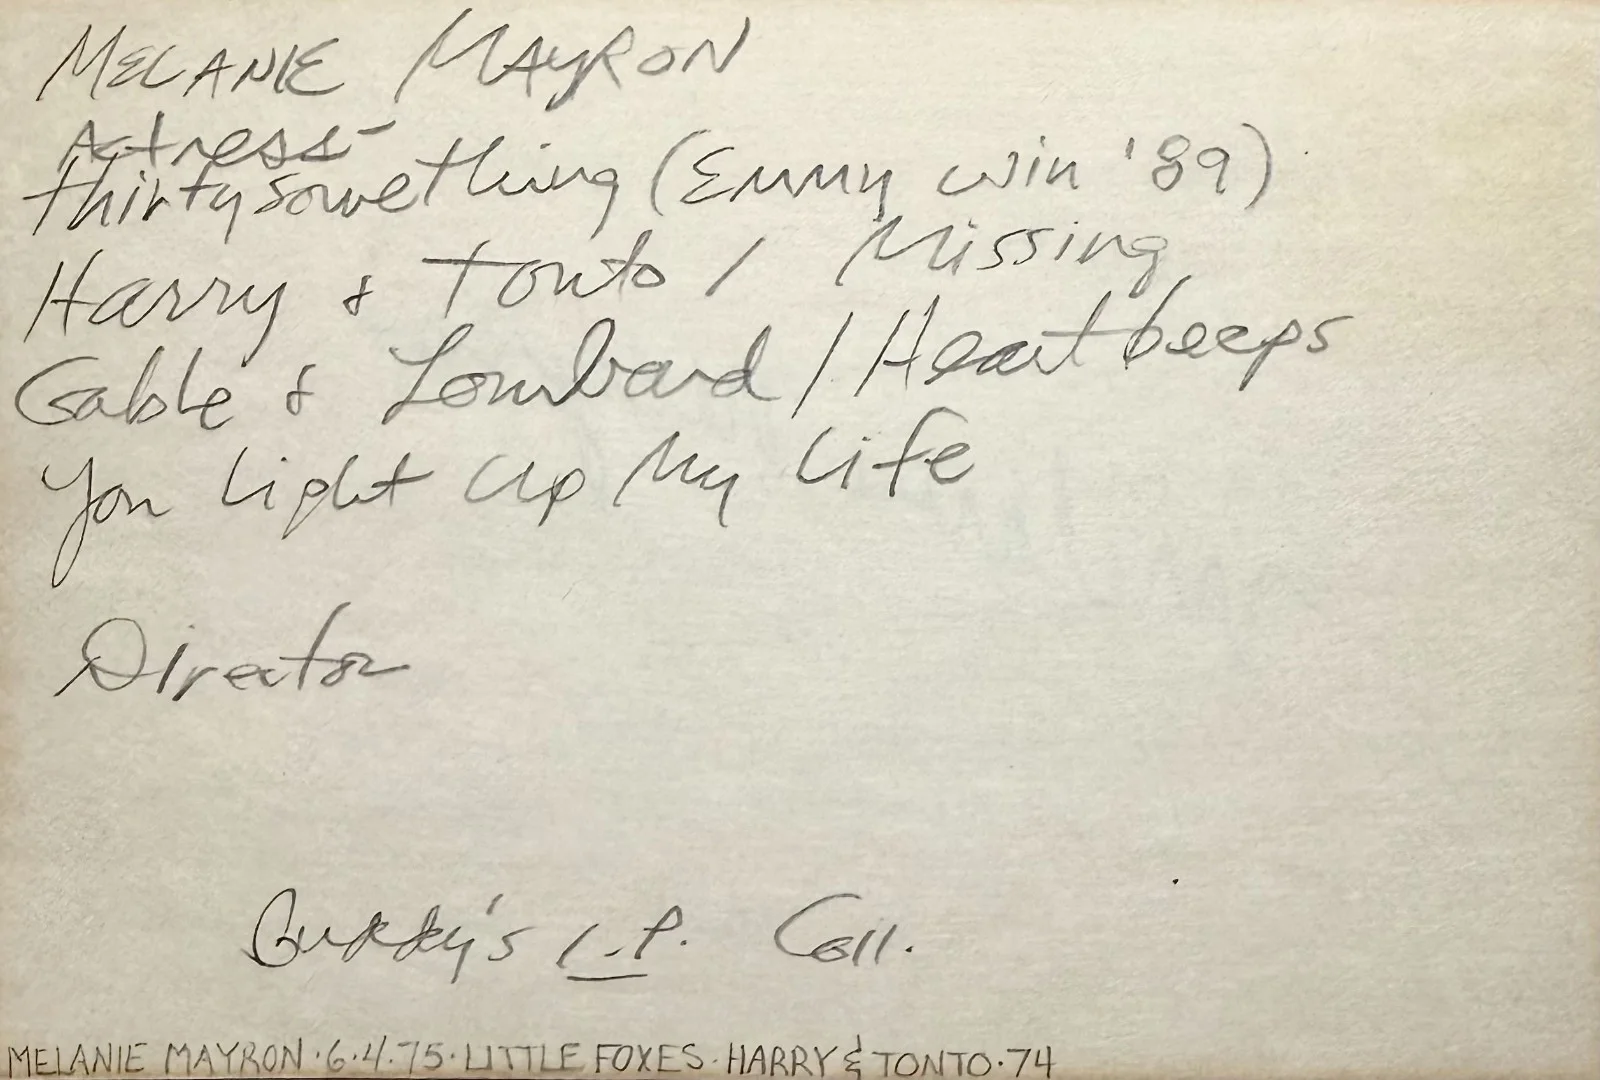 MELANIE MAYRON
Actress-
thirtysomething (Emmy win '89)
Harry & Tonto / Missing
Gable & Lombard / Heartbeeps
You Light Up My Life
Director
Buddy's I.P. Coll.
MELANIE MAYRON·6·4·75·LITTLE FOXES·HARRY & TONTO·74